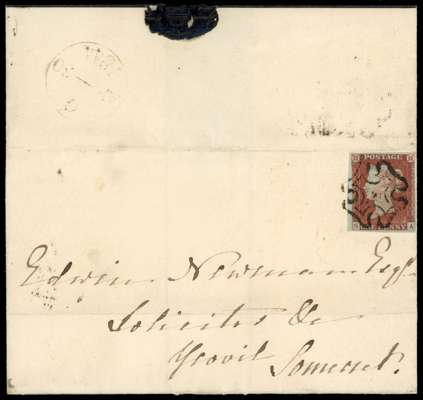 POSTAGE
ONE PENNY
A
Edwin Newman Esqr
Solicitor &c
Yeovil Somerset.